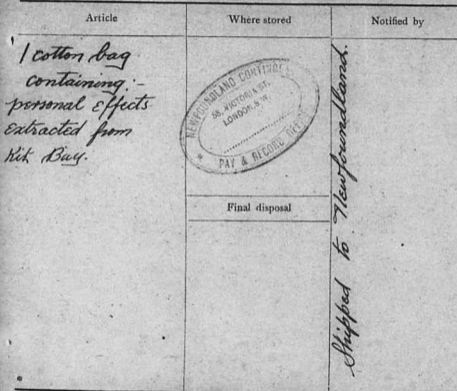 Article
Where stored
Notified by
1 cotton bag
containing:-
personal effects
extracted from
Kit Bag.
NEWFOUNDLAND CONTINGENT
58, VICTORIA ST.
LONDON, S.W.
* PAY & RECORD OFFICE
Final disposal
Shipped to Newfoundland.